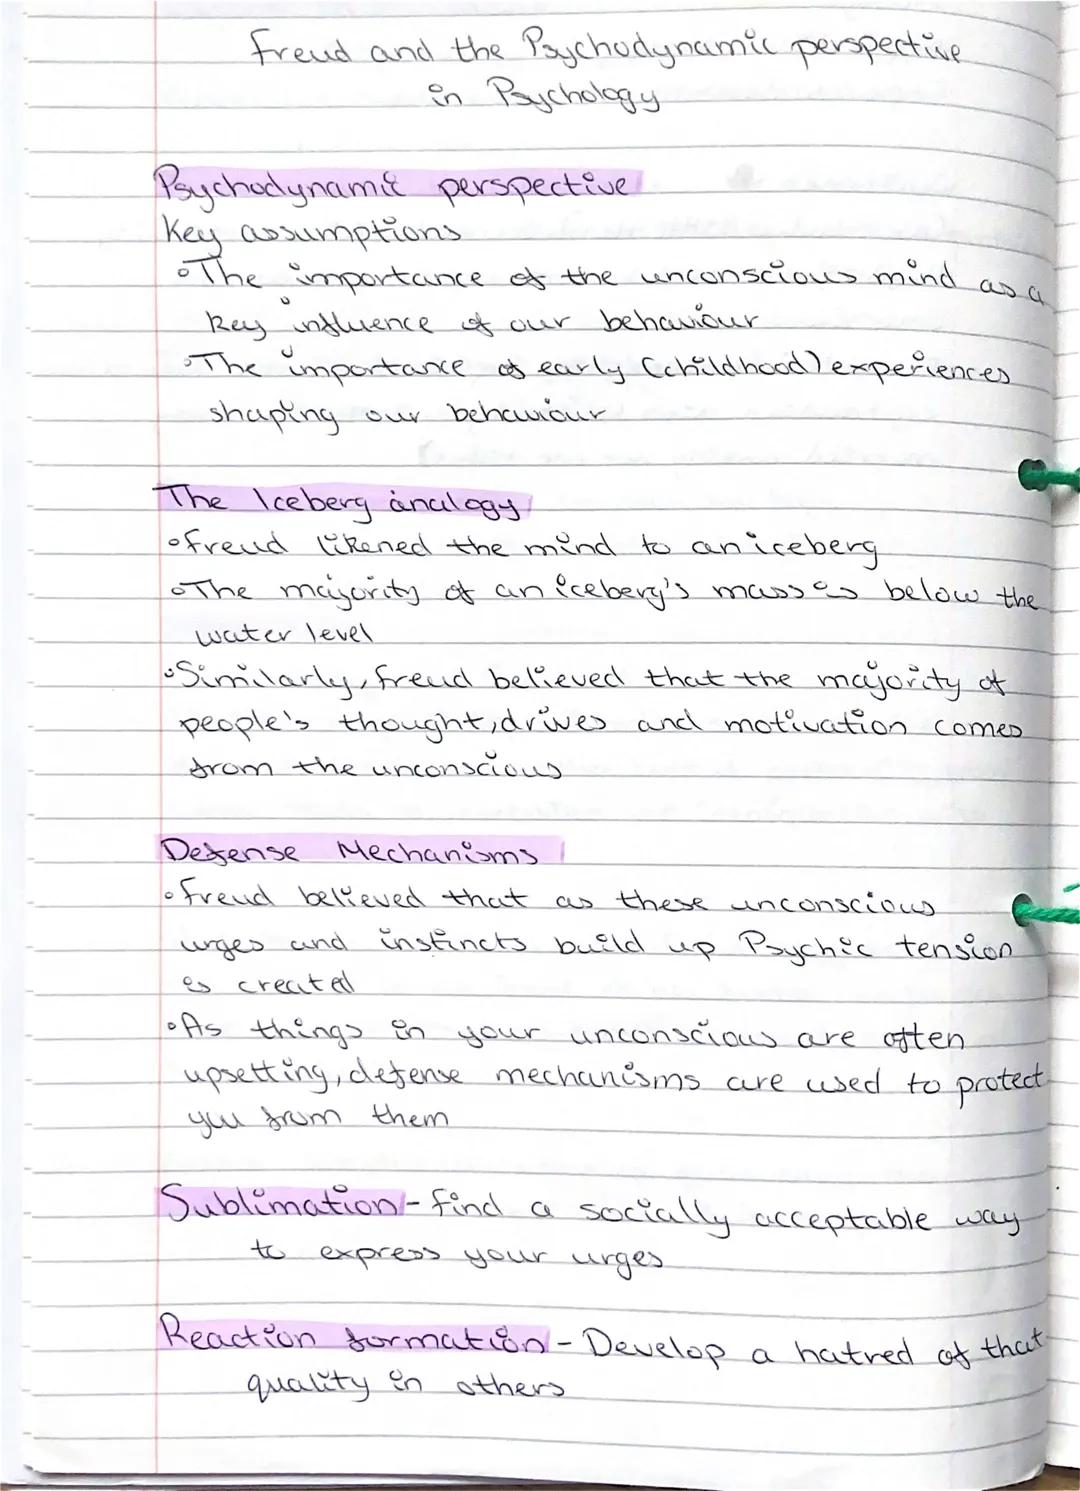 Freud and the Psychodynamic perspective
in Psychology
Psychodynamic perspective
Key assumptions
• The importance of the unconscious mind as a
key influence of our behaviour
• The importance of early (childhood) experiences
shaping our behaviour
The Iceberg analogy
• Freud likened the mind to an iceberg
• The majority of an iceberg's mass is below the
water level
• Similarly, Freud believed that the majority of
people's thought, drives and motivation comes
from the unconscious
Defense Mechanisms
• Freud believed that as these unconscious
urges and instincts build up Psychic tension
is created
• As things in your unconscious are often
upsetting, defense mechanisms are used to protect
you from them
Sublimation - find a socially acceptable way
to express your urges
Reaction formation - Develop a hatred of that
quality in others